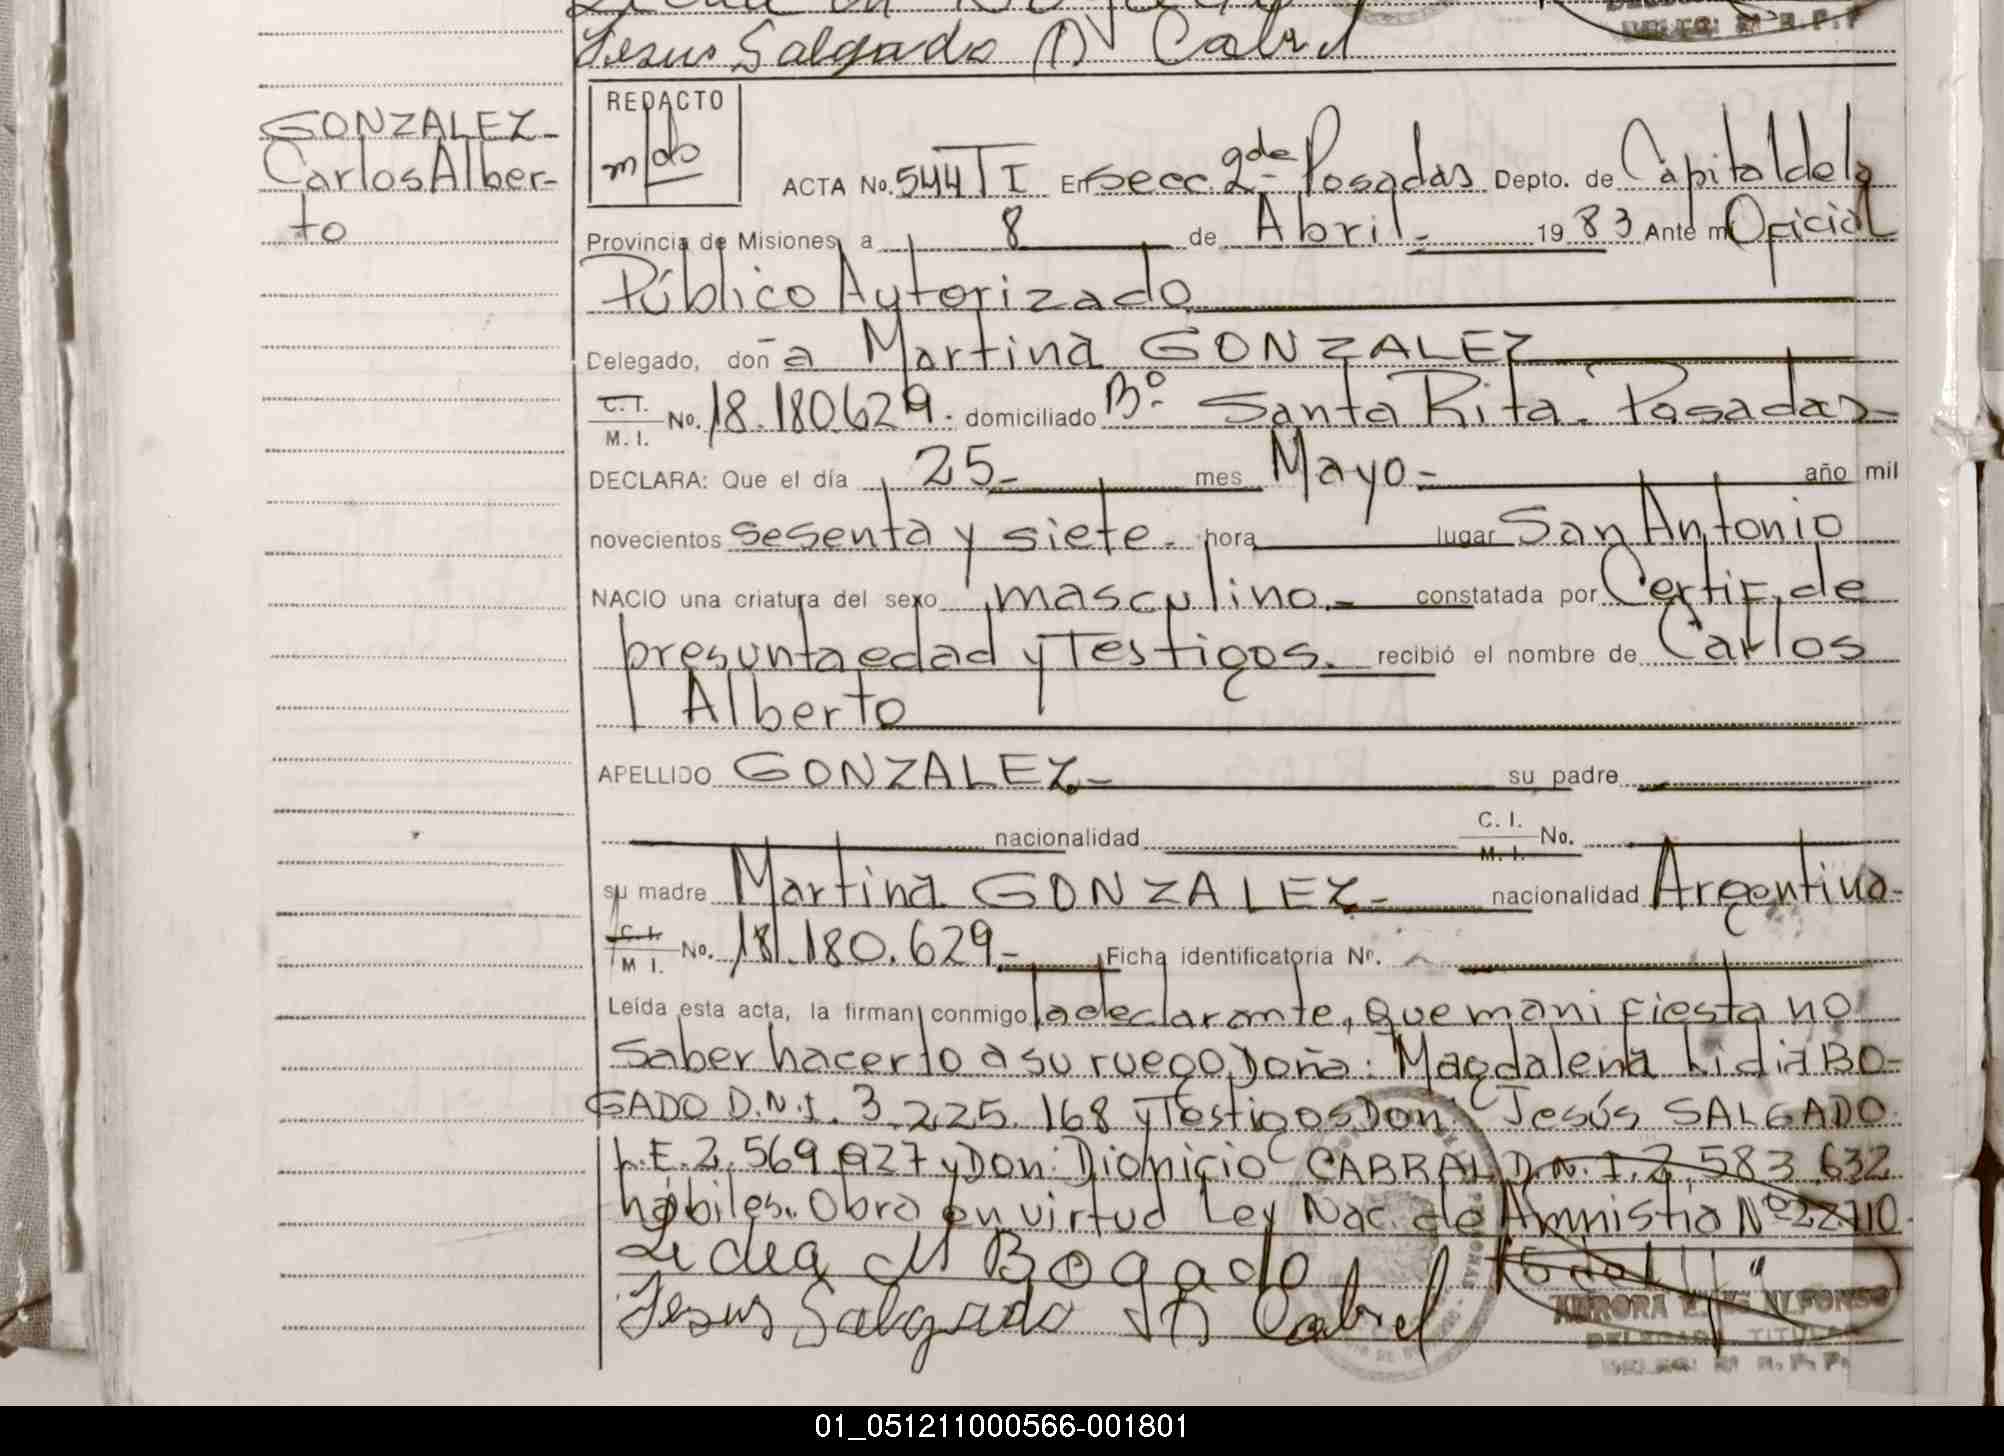 Jesus Salgado D Cabrel
GONZALEZ-
Carlos Alber-
to
REDACTO
mdo
ACTA No. 544 T I En secc. 2da Posadas Depto. de Capital de la
Provincia de Misiones, a 8 de Abril- 1983 Ante mi Oficial
Público Autorizado
Delegado, doña Martina GONZALEZ
C.I.
M. I. No. 18.180.629. domiciliado Bº. Santa Rita. Posadas
DECLARA: Que el día 25- mes Mayo- año mil
novecientos sesenta y siete- hora lugar San Antonio
NACIO una criatura del sexo masculino- constatada por Certif. de
presunta edad y Testigos. recibió el nombre de Carlos
Alberto
APELLIDO GONZALEZ- su padre
nacionalidad C. I.
M. I. No.
su madre Martina GONZALEZ- nacionalidad Argentina-
C. I.
M I. No. 18.180.629- Ficha identificatoria Nr.
Leída esta acta, la firman conmigo la declarante, que manifiesta no
saber hacerlo a su ruego Doña: Magdalena Lidia BO-
GADO D.N.I. 3.225.168 y Testigos Don: Jesús SALGADO
L.E. 2.569.927 y Don: Dionicio CABRAL D.N.I. 2.583.632
hábiles. Obra en virtud Ley Nac. de Amnistia Nº 22.710.
Lidia M Bogado
Jesus Salgado D Cabrel
AURORA ALFONSO
DELEGADA TITULAR
01_051211000566-001801